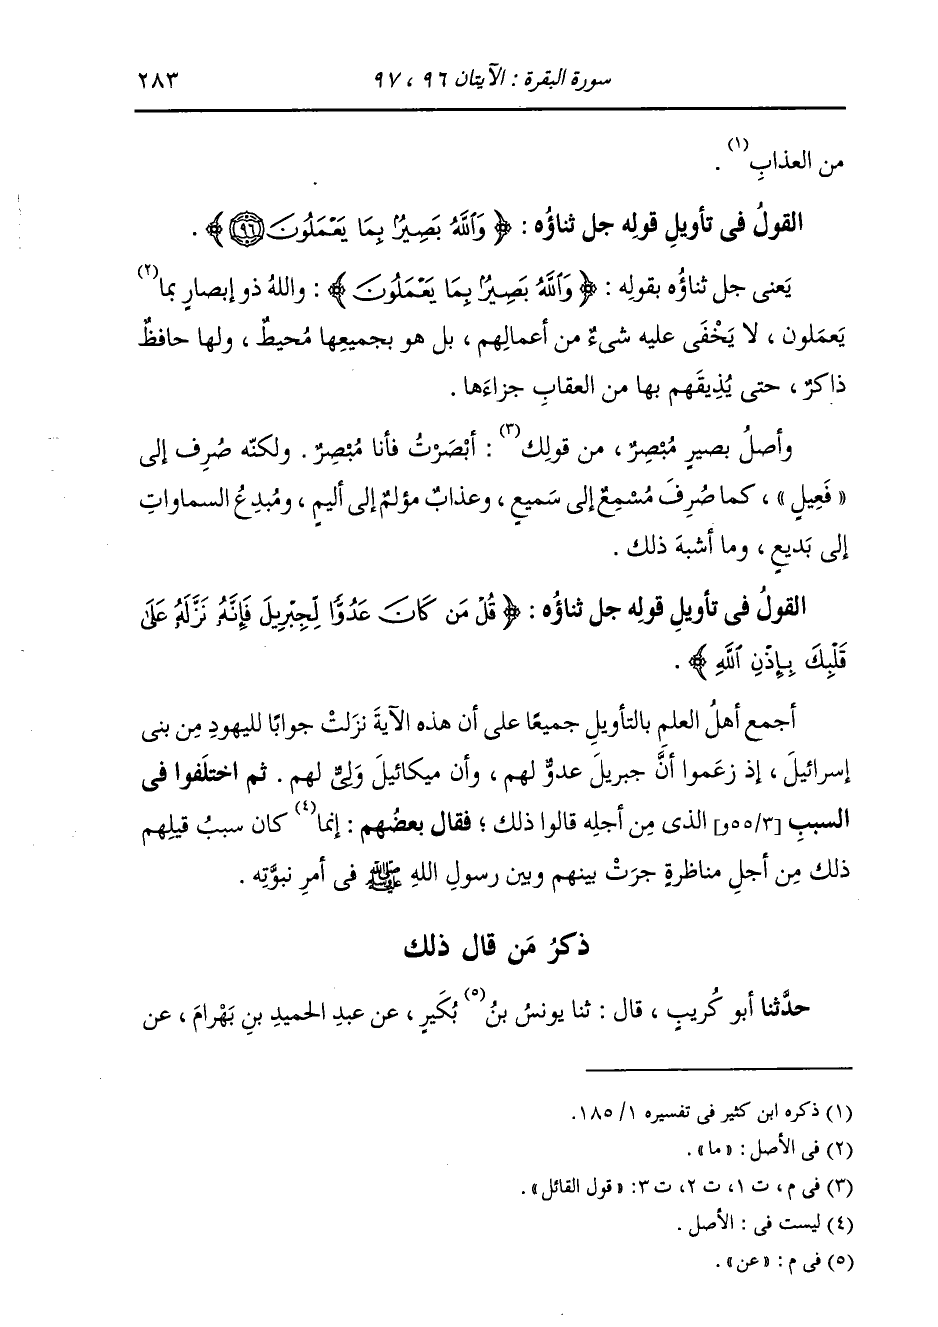 سورة البقرة : الآيتان ٩٦ ، ٩٧ ٢٨٣
من العذابِ(١) .
القولُ فى تأويلِ قولِه جل ثناؤُه : ﴿ وَٱللَّهُ بَصِيرٌۢ بِمَا يَعْمَلُونَ ٩٦ ﴾ .
يَعنى جل ثناؤُه بقولِه : ﴿ وَٱللَّهُ بَصِيرٌۢ بِمَا يَعْمَلُونَ ﴾ : واللهُ ذو إبصارٍ بما(٢)
يَعمَلون ، لا يَخْفَى عليه شىءٌ من أعمالِهم ، بل هو بجميعِها مُحيطٌ ، ولها حافظٌ
ذاكرٌ ، حتى يُذِيقَهم بها من العقابِ جزاءَها .
وأصلُ بصيرٍ مُبْصِرٌ ، من قولِك(٣) : أَبْصَرْتُ فأنا مُبْصِرٌ . ولكنّه صُرِف إلى
« فَعِيلٍ » ، كما صُرِفَ مُسْمِعٌ إلى سَميعٍ ، وعذابٌ مؤلمٌ إلى أليمٍ ، ومُبدِعُ السماواتِ
إلى بَديعٍ ، وما أشبهَ ذلك .
القولُ فى تأويلِ قولِه جل ثناؤُه : ﴿ قُلْ مَن كَانَ عَدُوًّا لِّجِبْرِيلَ فَإِنَّهُۥ نَزَّلَهُۥ عَلَىٰ
قَلْبِكَ بِإِذْنِ ٱللَّهِ ﴾ .
أجمع أهلُ العلمِ بالتأويلِ جميعًا على أن هذه الآيةَ نزَلتْ جوابًا لليهودِ مِن بنى
إسرائيلَ ، إذ زعَموا أنَّ جبريلَ عدوٌّ لهم ، وأن ميكائيلَ وَلِىٌّ لهم . ثم اختلَفوا فى
السببِ [٣/٥٥و] الذى مِن أجلِه قالوا ذلك ؛ فقال بعضُهم : إنما(٤) كان سببُ قيلِهم
ذلك مِن أجلِ مناظرةٍ جرَتْ بينهم وبين رسولِ اللهِ ﷺ فى أمرِ نبوَّتِه .
ذكرُ مَن قال ذلك
حدَّثنا أبو كُريبٍ ، قال : ثنا يونسُ بنُ(٥) بُكَيرٍ ، عن عبدِ الحميدِ بنِ بَهْرامَ ، عن
(١) ذكره ابن كثير فى تفسيره ١/ ١٨٥.
(٢) فى الأصل : «ما» .
(٣) فى م ، ت ١، ت ٢، ت ٣: «قول القائل» .
(٤) ليست فى : الأصل .
(٥) فى م : «عن» .